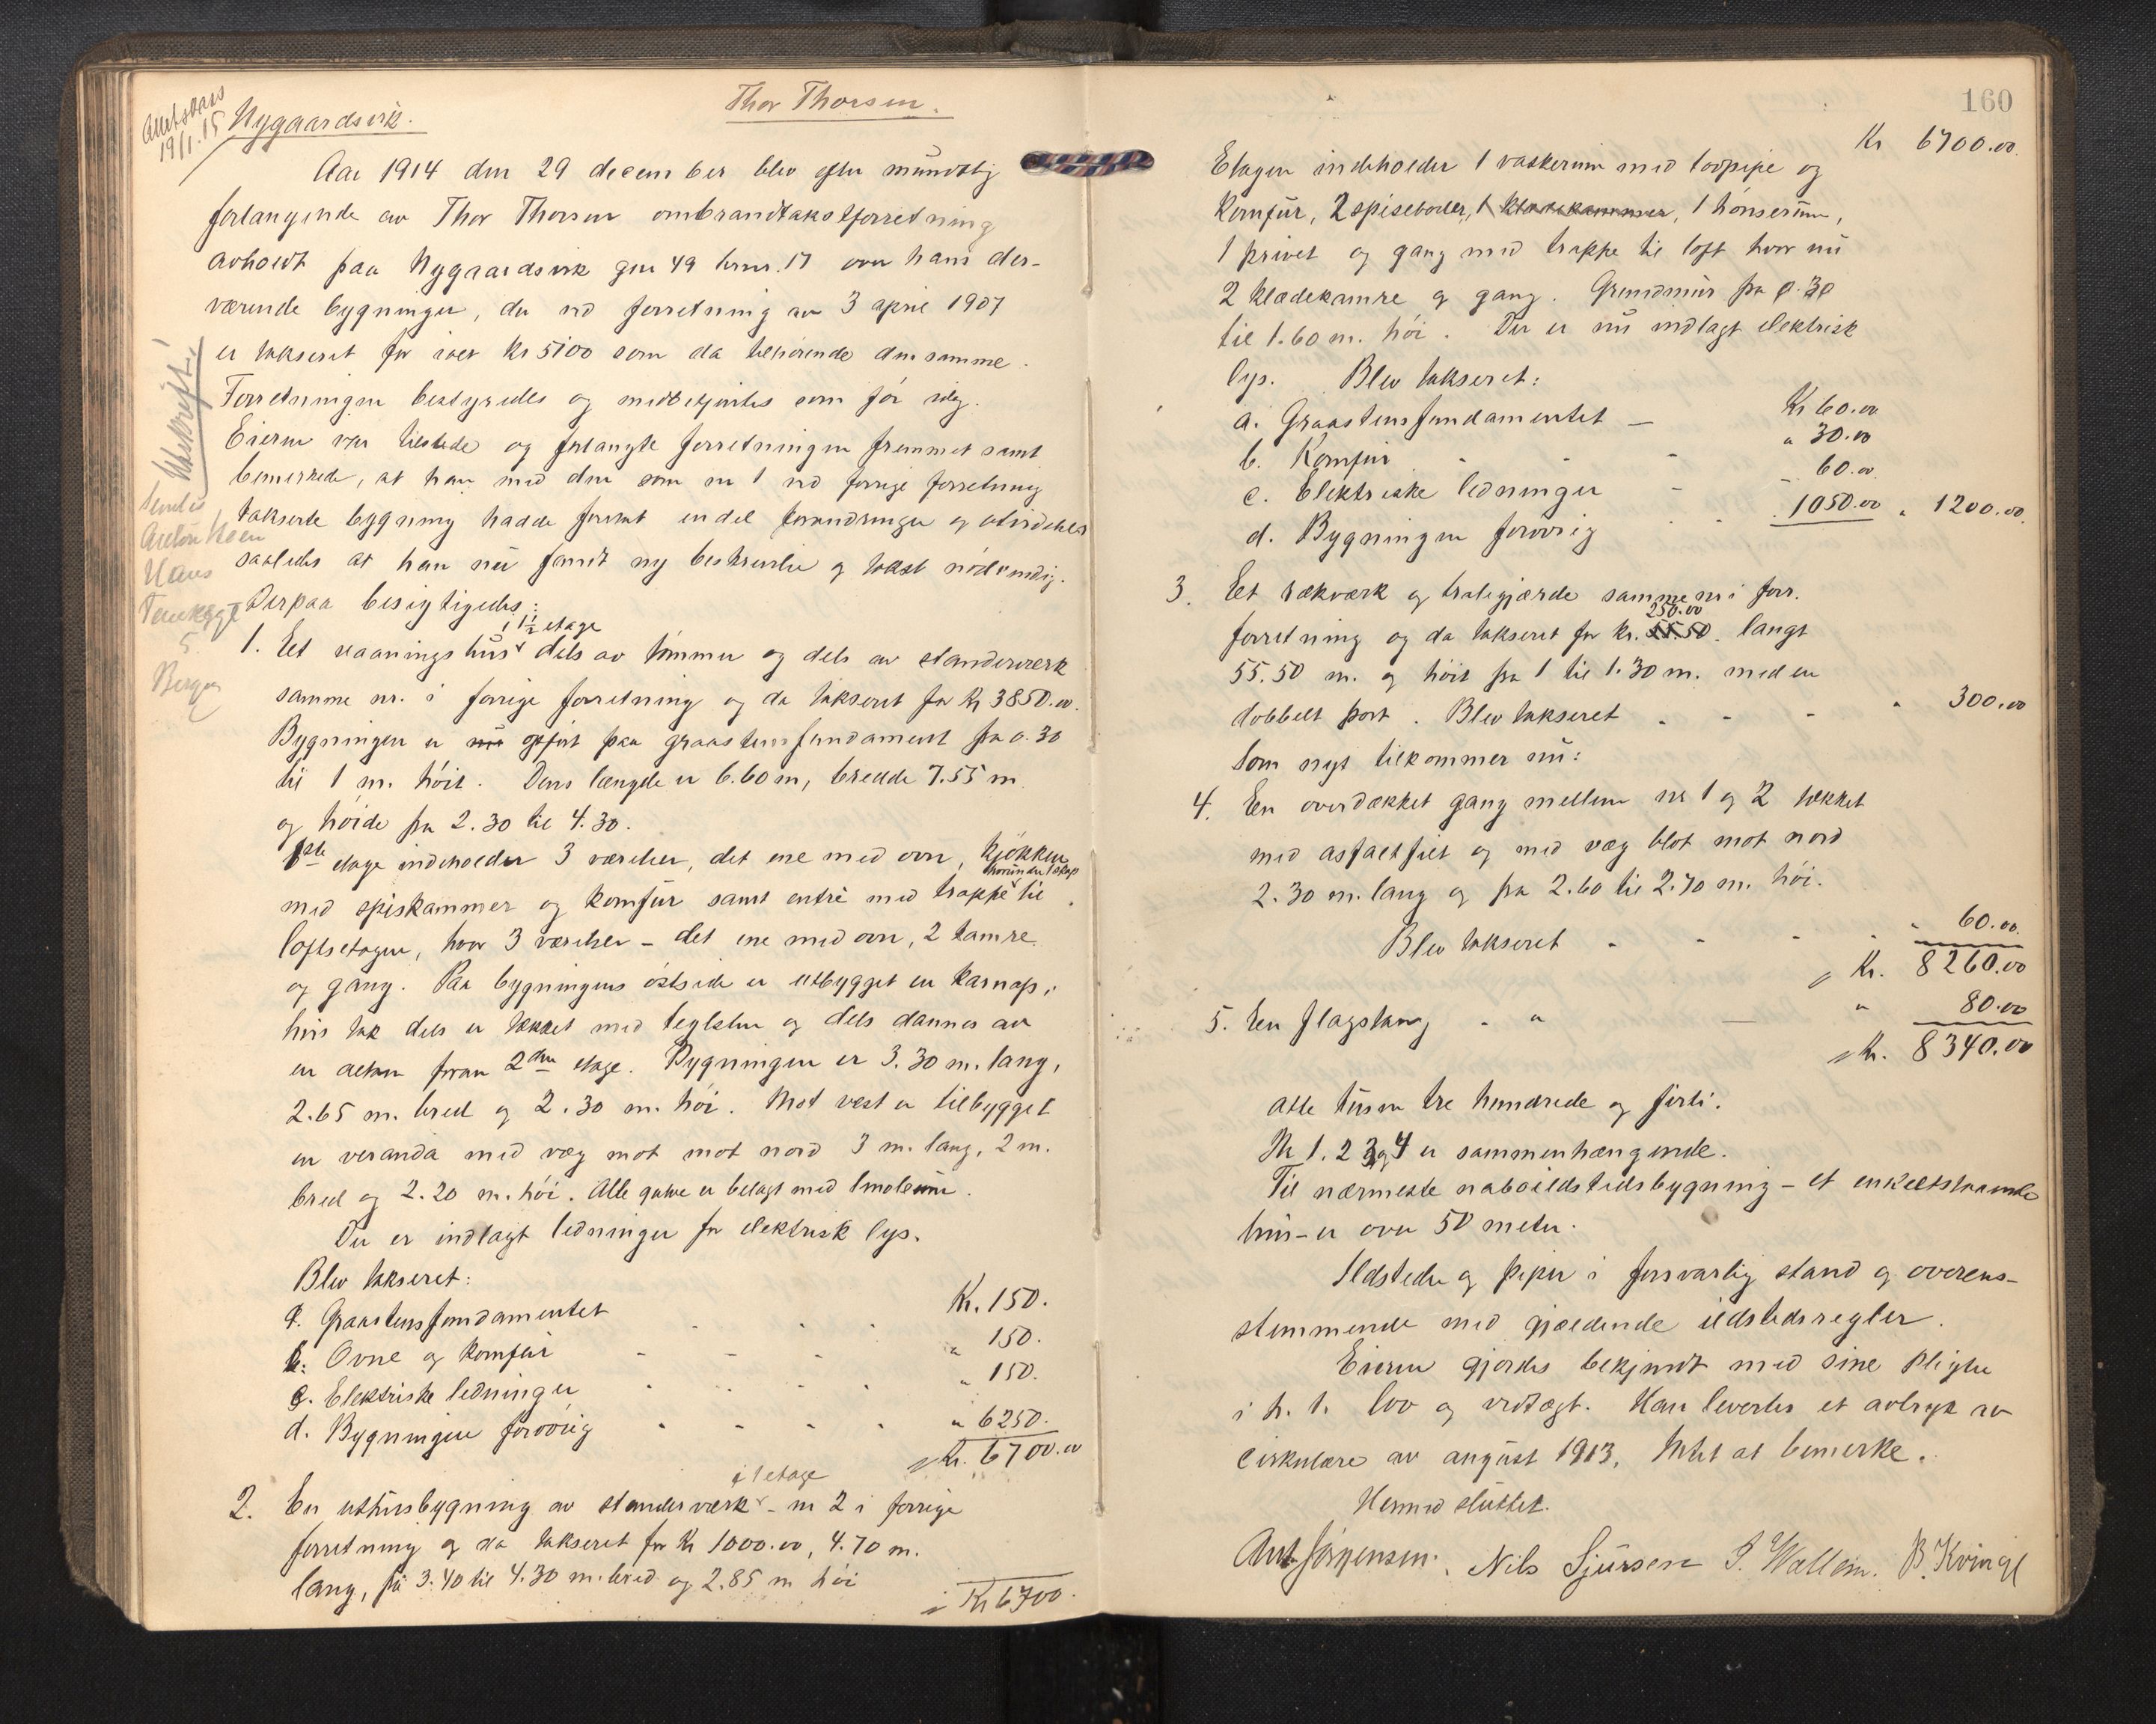 Thor Thorsen.
19/1.15
Nygaardsvik.
Aar 1914 den 29 december blev efter mundtlig
forlangende av Thor Thorsen ombrandtakstforretning
avholdt paa Nygaardsvik gnr 49 brnr. 17 over hans der-
værende bygninger, der ved forretning av 3 april 1907
er takseret for ialt Kr 5100 som da tilhørende den samme.
Forretningen bestyredes og medbetjentes som før idag.
Eieren var tilstede og forlangte forretningen fremmet samt
bemerkede, at han med den som nr 1 ved forrige forretning
takserte bygning hadde foretat endel forandringer og utvidelser
saaledes at han nu fandt ny beskrivelse og takst nødvendig.
Derpaa besigtigedes:
Utskrift!
sendes
Anton
Hans
5.
Bergen
i 1½ etage
1. Et vaaningshus dels av tømmer og dels av standerverk
samme nr. i forrige forretning og da takseret for Kr 3850.00.
Bygningen er nu opført paa graastensfundament fra 0.30
til 1 m. høit. Dens længde er 6.60 m, bredde 7.55 m
og høide fra 2.30 til 4.30.
1ste etage indeholder 3 værelser, det ene med ovn, kjøkken
hvorunder 1 skap
med spiskammer og komfur samt entré med trappe til
loftsetagen, hvor 3 værelser - det ene med ovn, 2 kamre
og gang. Paa bygningens østside er utbygget en karnap,
hvis tak dels er tækket med teglsten og dels dannes av
en altan foran 2den etage. Bygningen er 3.30 m. lang,
2.65 m. bred og 2.30 m. høi. Mot vest er tilbygget
en veranda med væg mot mot nord 3 m. lang, 2 m.
bred og 2.20 m. høi. Alle gulve er belagt med linoleum.
Der er indlagt ledninger for elektrisk lys.
Blev takseret:
a. Graastensfundamentet Kr. 150.
b. Ovne og komfur - - - " 150.
c. Elektriske ledninger " 150.
d. Bygningen forøvrig " 6250.
Kr. 6700.00
i 1 etage
2. En uthusbygning av standerværk - nr 2 i forrige
forretning og da takseret for Kr 1000.00, 4.70 m.
lang, fra 3.40 til 4.30 m. bred og 2.85 m høi
Kr 6700.
160
Kr 6700.00.
Etagen indeholder 1 vaskerum med tovpipe og
Komfur, 2 spiseboder, 1 klædekammer, 1 hønserum,
1 privet og gang med trappe til loft hvor nu
2 klædekamre og gang. Grundmur fra 0.30
til 1.60 m. høi. Der er nu indlagt elektrisk
lys. Blev takseret:
a. Graastensfundamentet - Kr 60.00
b. Komfur - - - " 30.00
c. Elektriske ledninger - - 60.00
d. Bygningen forøvrig 1050.00 " 1200.00.
3. Et rækværk og tralegjærde samme nr i forr.
250.00
forretning og da takseret for kr. 55.50. langt
55.50 m. og høit fra 1 til 1.30 m. med en
dobbelt port. Blev takseret - - - " 300.00
Som nyt tilkommer nu:
4. En overdækket gang mellem nr 1 og 2 tækket
med asfaltfilt og med væg blot mot nord
2.30 m. lang og fra 2.60 til 2.70 m. høi.
Blev takseret - - - - " 60.00.
Kr. 8260.00
5. En flagstang - " — " 80.00
Kr. 8340.00
otte tusen tre hundrede og førti.
Nr 1. 2 3 og 4 er sammenhængende.
Til nærmeste naboildstedsbygning - et enkeltstaaende
hus - er over 50 meter.
Ildsteder og piper i forsvarlig stand og overens-
stemmende med gjældende ildstedsregler.
Eieren gjordes bekjendt med sine pligter
i h. t. lov og vedtægt. Han levertes et avtryk av
cirkulære av august 1913. Intet at bemerke.
Hermed sluttet.
Ant Jørgensen. Nils Sjursen J. Wallem. B. Kvinge